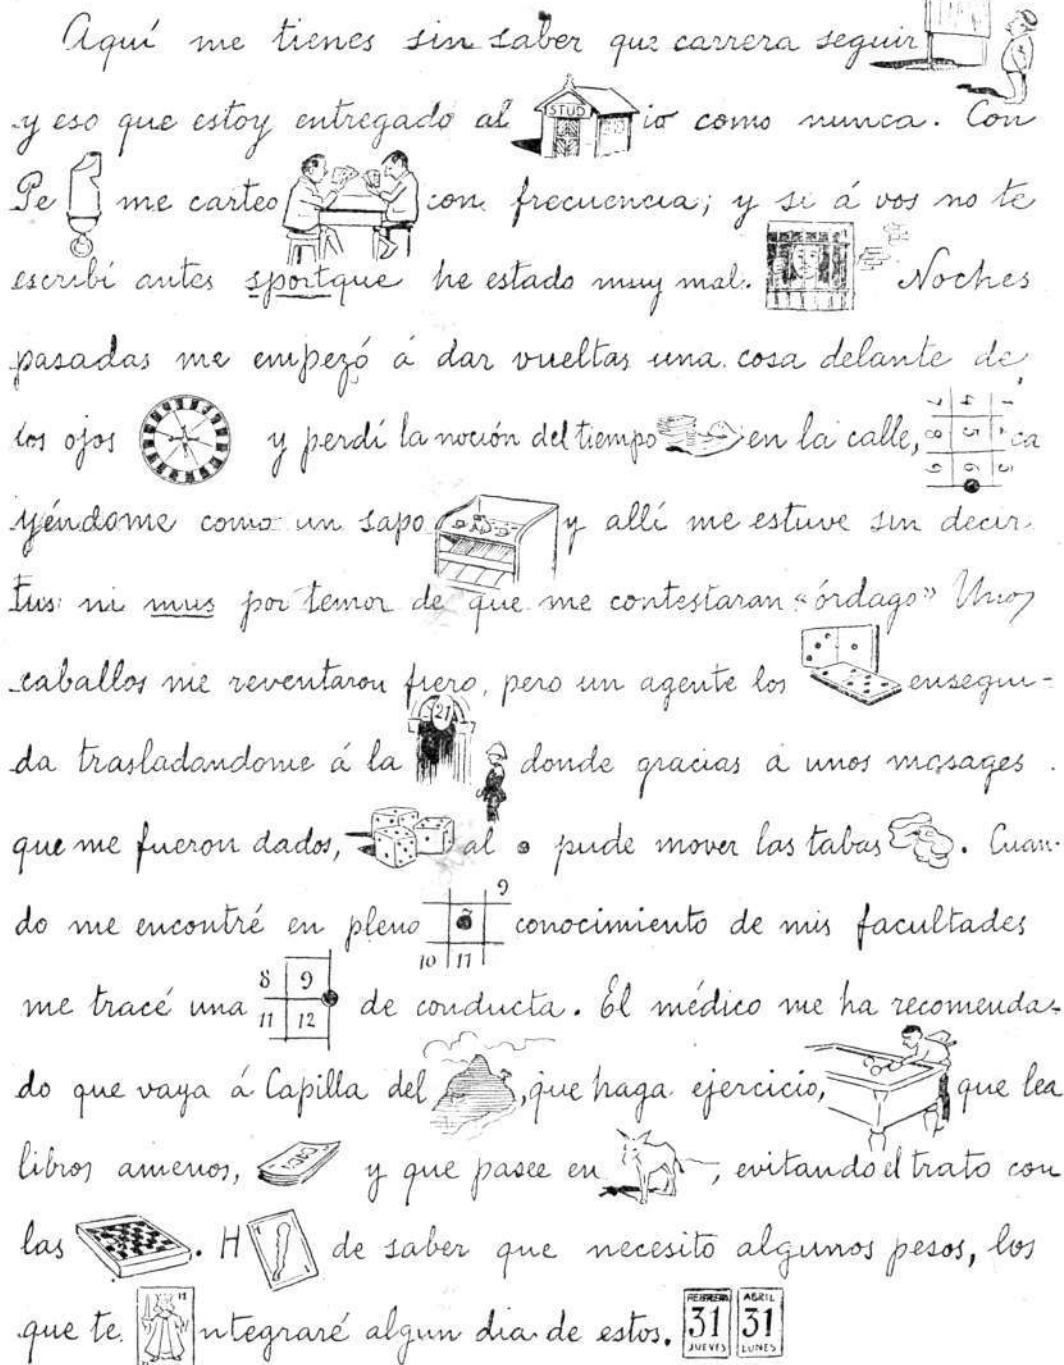 Aquí me tienes sin saber que carrera seguir
y eso que estoy entregado al STUD io como nunca. Con
Pe me carteo con frecuencia; y si á vos no te
escribí antes sportque he estado muy mal. Noches
pasadas me empezó á dar vueltas una cosa delante de
los ojos y perdí la noción del tiempo en la calle, ca
yéndome como un sapo y allí me estuve sin decir
tus ni mus por temor de que me contestaran "órdago" Unos
caballos me reventaron fiero, pero un agente los ensegui-
da trasladandome á la 21 donde gracias á unos masages
que me fueron dados, al pude mover las tabas. Cuan-
do me encontré en pleno 8 9 10 11 conocimiento de mis facultades
me tracé una 8 9 11 12 de conducta. El médico me ha recomenda-
do que vaya á Capilla del, que haga ejercicio, que lea
libros amenos, y que pasee en, evitando el trato con
las. H de saber que necesito algunos pesos, los
que te 12 ntegraré algun dia de estos. FEBRERO 31 JUEVES ABRIL 31 LUNES